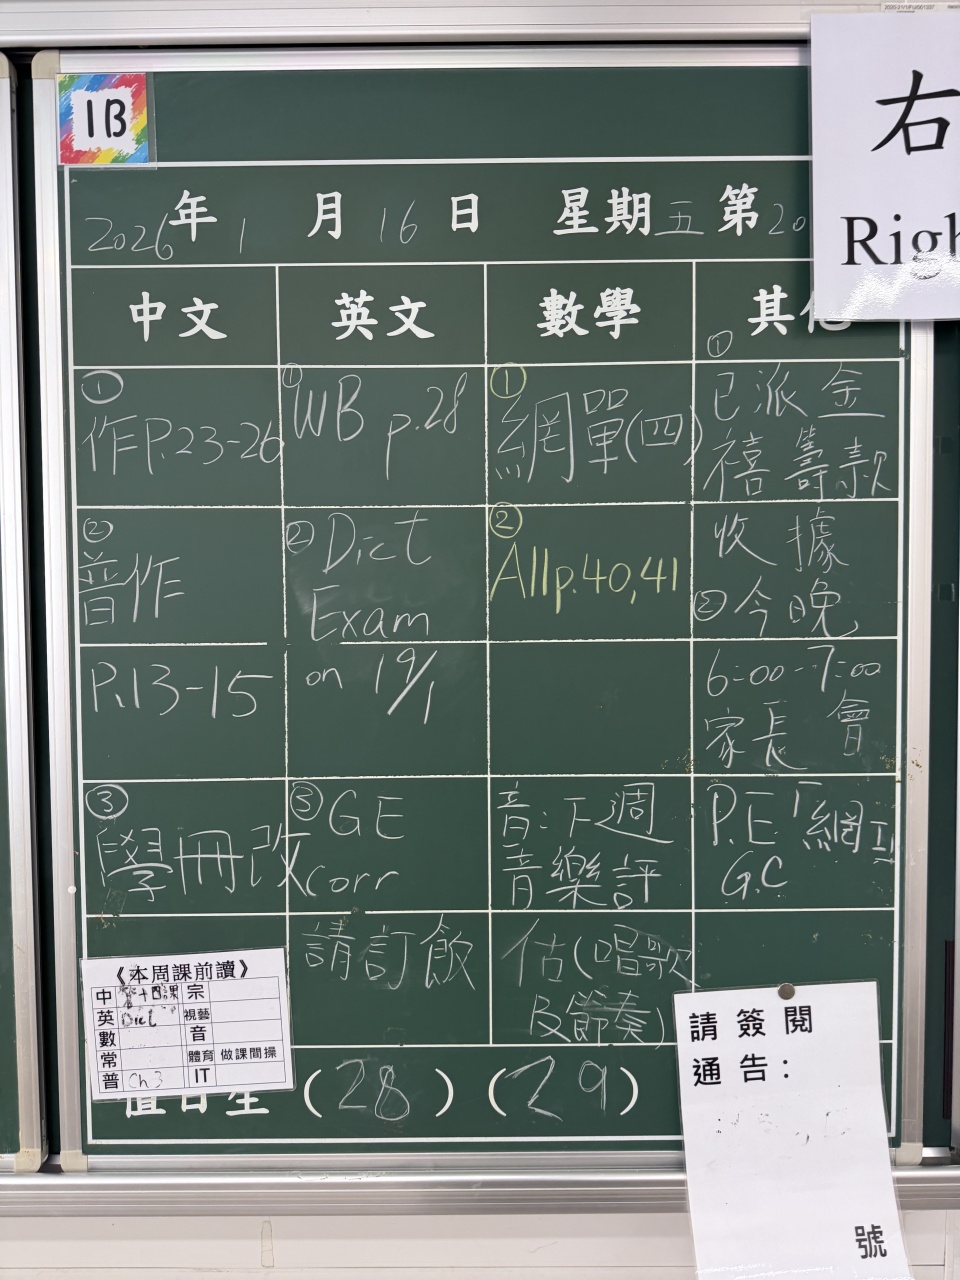 1B
2026年1月16日 星期五 第20
右
Righ
中文 英文 數學 其他
①
作P.23-26
②
普作
P.13-15
③
學冊改
①
WB p.28
② Dict
Exam
on 19/1
③ GE
Corr
請訂飯
①
網單(四)
②
All p.40,41
音:下週
音樂評
估(唱歌
及節奏)
①
已派金
禧籌款
收據
②今晚
6:00-7:00
家長會
P.E「網
G.C
《本周課前讀》
中 第十四課 宗
英 Dict 視藝
數 音
常 體育 做課間操
普 Ch 3 IT
值日生 (28) (29)
請簽閱
通告:
號